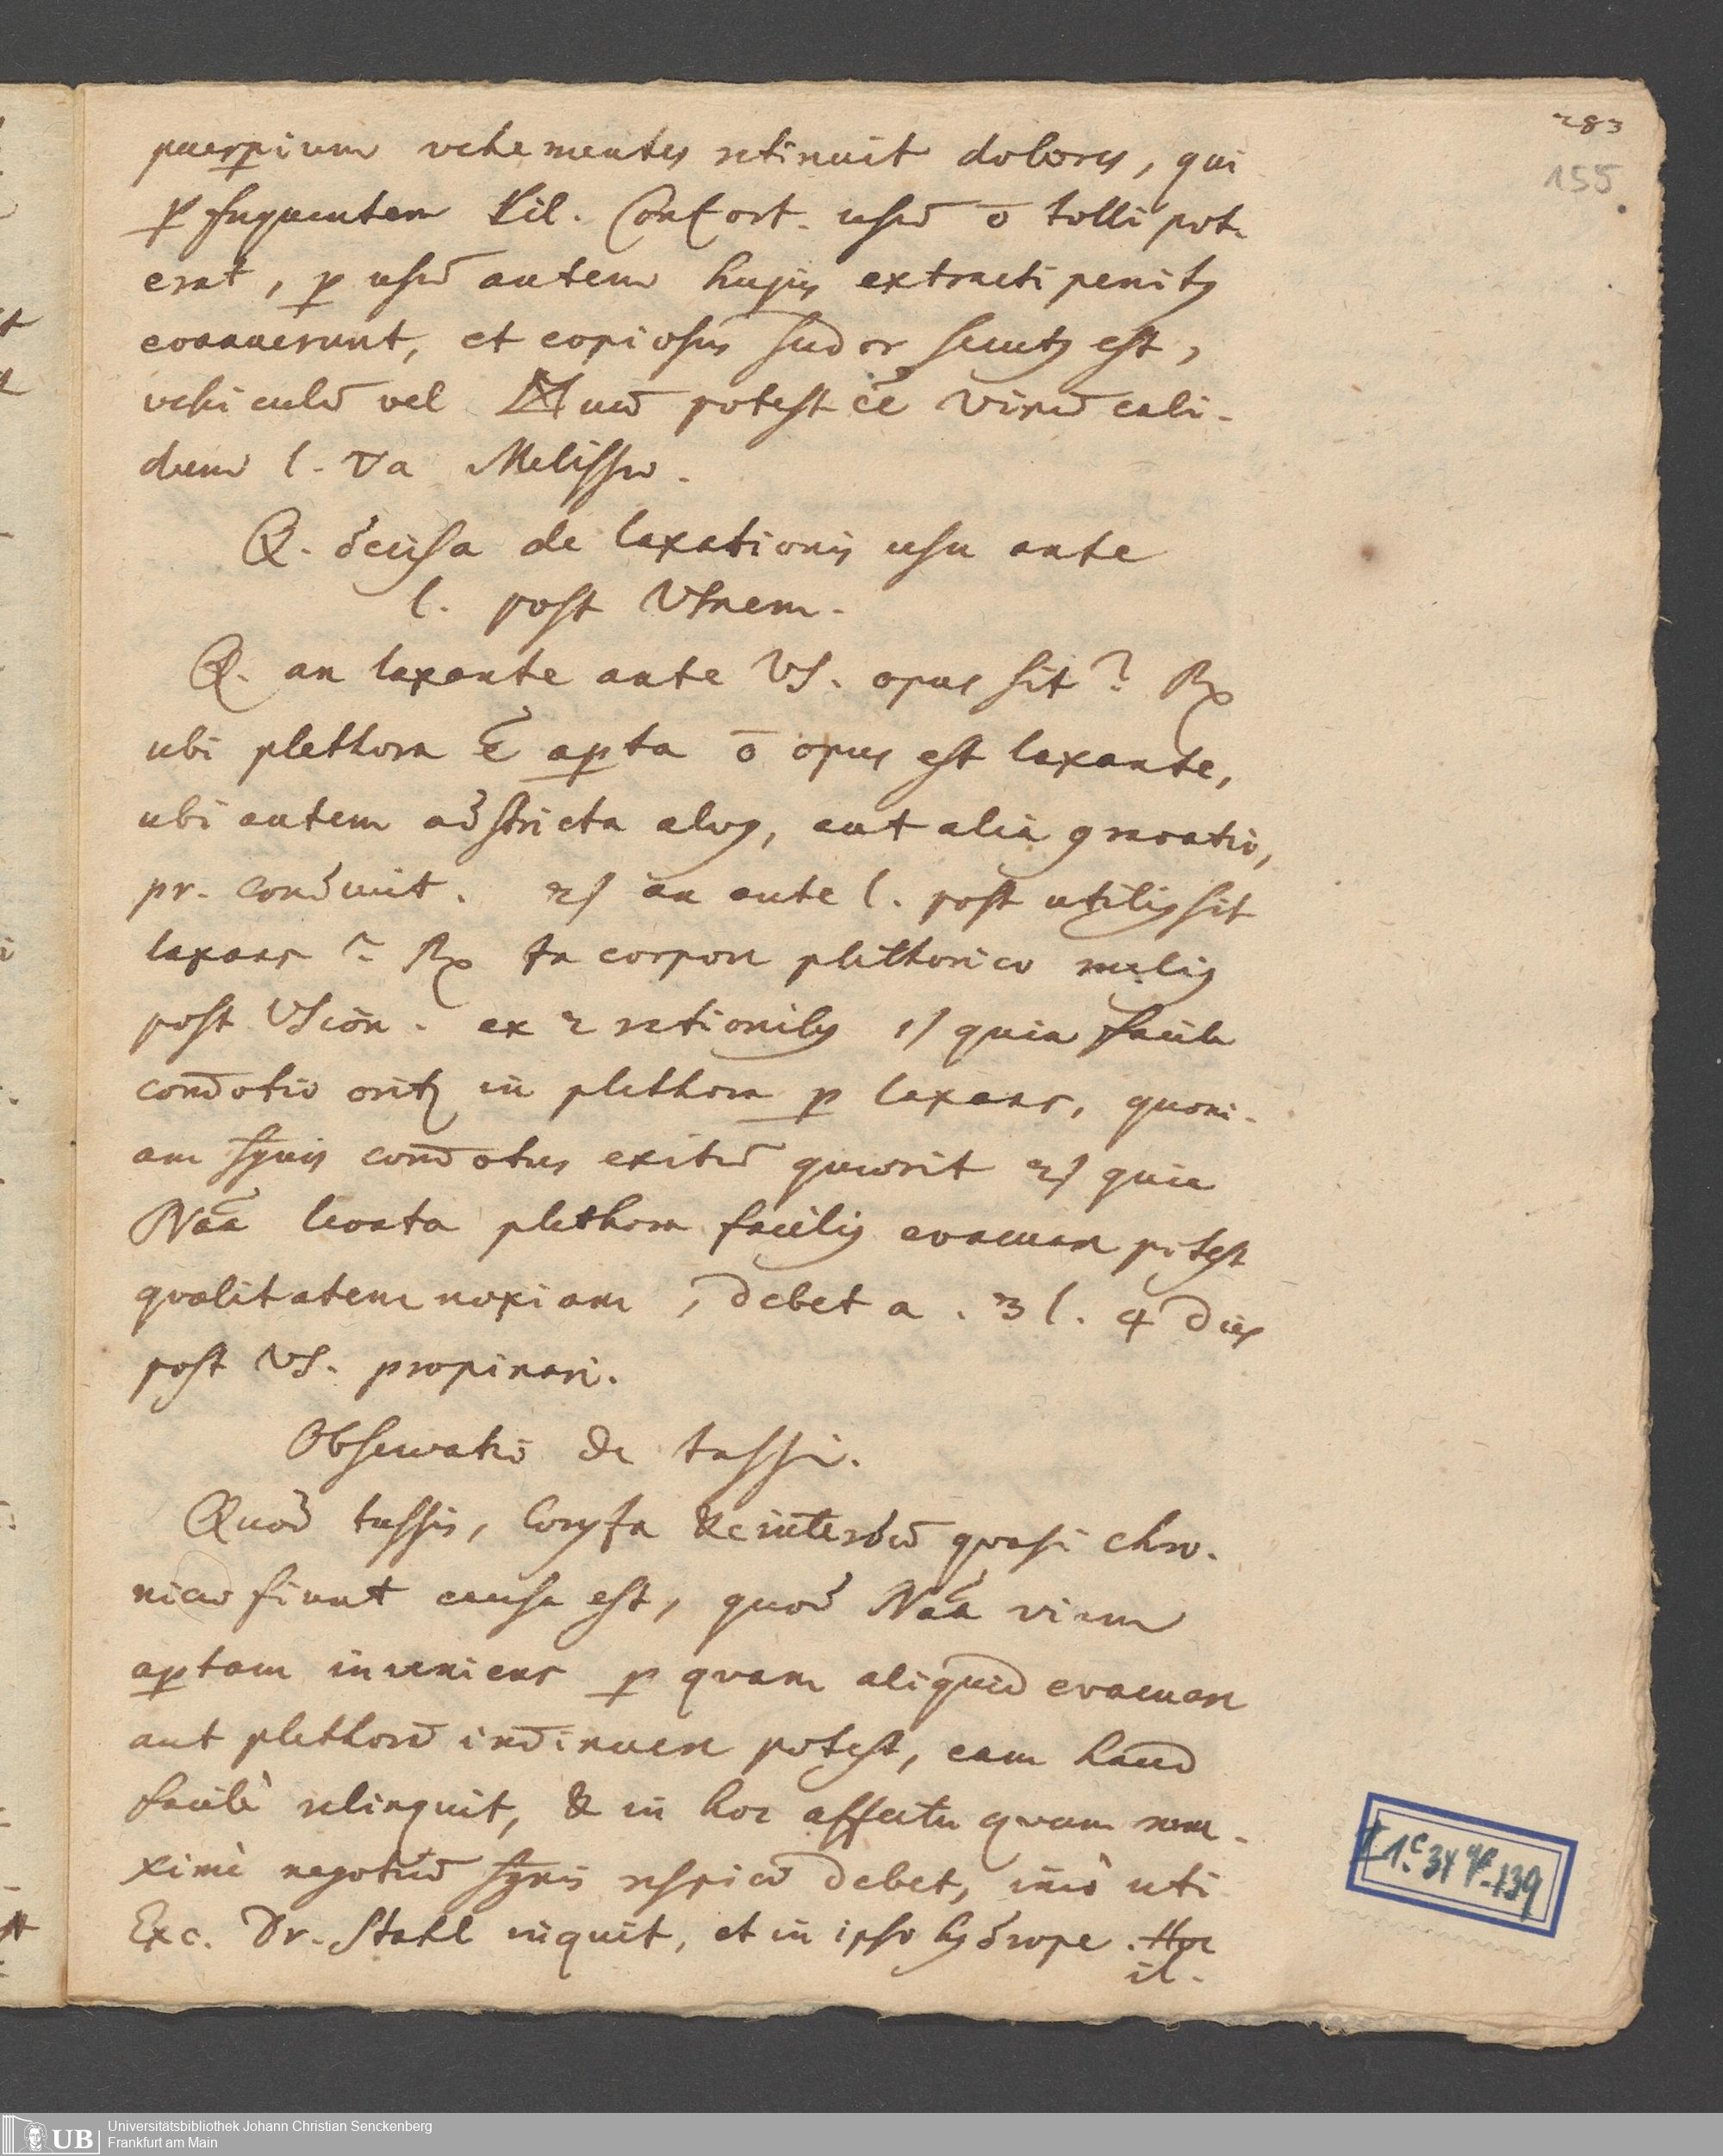 283
155
puerpium vehementes retinuit dolores, qui
p frequentem Pil. Confort. usū ō tolli pot-
erat, p usū autem hujus extracti penitꝰ
evanuerunt, et copiosus sudor secutꝰ est,
vehiculū vel potest ēē vinū cali-
dum l. ▽a Melissæ.
Q. de laxationis usu ante
l. post VSnem.
Q. an laxante ante VS. opus sit? Rx
ubi plethora ē apta ō opus est laxante,
ubi autem adstricta alvꝰ, aut alia gravatio,
pr. conducit. 2) an ante l. post utiliꝰ sit
laxans? Rx In corpore plethorico meliꝰ
post VSiōn. ex 2 rationibꝰ 1) quia facile
com̄otio orit in plethora p laxans, quoni-
am sgvis com̄otus exitū quærit 2) quia
Naā levata plethora faciliꝰ evacuare potest
qvalitatem noxiam, debet a. 3 l. 4 dies
post VS. propinari.
Observatio de tussi.
Quod tussis, Coryza &c interdū qvasi chro-
nicæ fiunt causa est, quod Naā viam
aptam inveniens p qvam aliquid evacuare
aut plethorā im̄inuere potest, eam haud
facilè relinquit, & in hoc affectu qvam ma-
ximè negotiū sgvis respici debet, imò uti
Exc. Dr. Stahl inquit, et in ipso hydrope. Hoc
il.
1c 34 qe-139
UB
Universitätsbibliothek Johann Christian Senckenberg
Frankfurt am Main